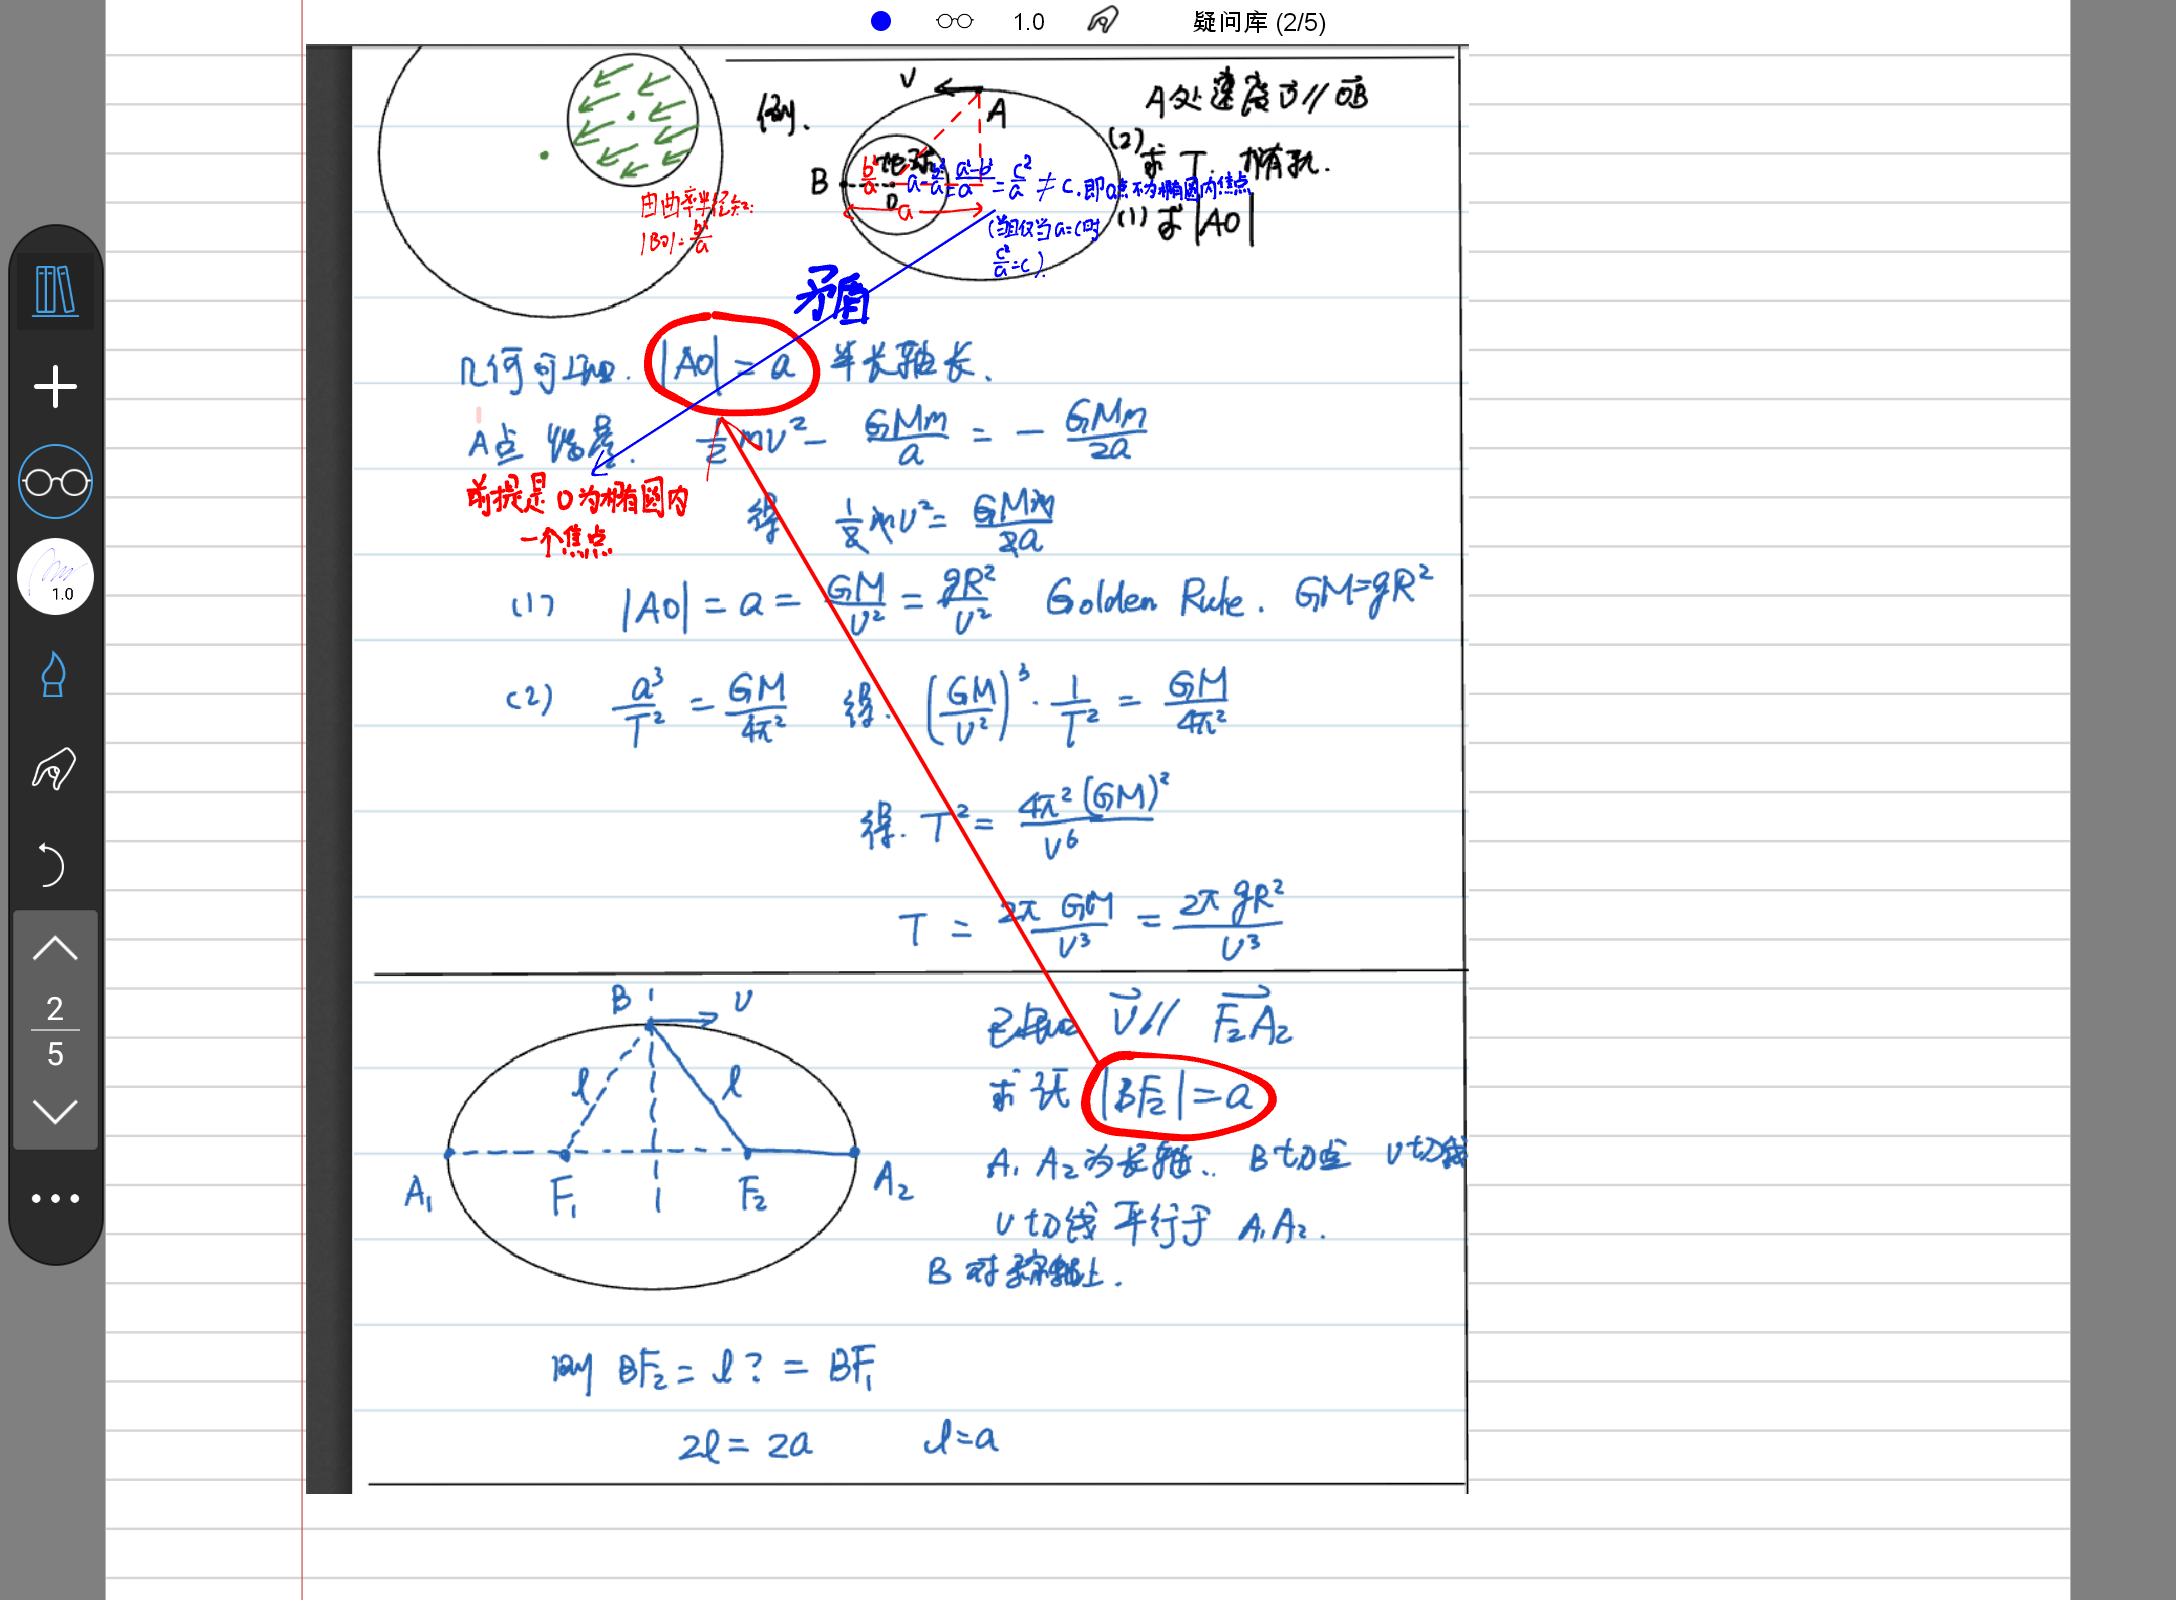 1.0
疑问库 (2/5)
V
A
例.
A处速度 v⃗ // OB
(2)
求 T 椭轨.
(1) 求 |AO|
B
地球
O
b²/a
a-b²/a = (a²-b²)/a = c²/a ≠ c. 即O点不为椭圆内焦点
(当且仅当 a=c 时
c²/a = c).
a
由曲率半径知:
|BO| = b²/a
矛盾
几何可知. |AO| = a 半长轴长.
A点 能量. 1/2 mv² - GMm/a = - GMm/2a
前提是 O 为椭圆内
一个焦点
得 1/2 mv² = GMm/2a
(1) |AO| = a = GM/v² = gR²/v² Golden Rule. GM=gR²
(2) a³/T² = GM/4π² 得. (GM/v²)³ · 1/T² = GM/4π²
得. T² = 4π²(GM)²/v⁶
T = 2π GM/v³ = 2π gR²/v³
B
v
l
l
A₁
F₁
F₂
A₂
已知 v⃗ // F₂A₂
求证 |BF₂| = a
A₁ A₂ 为长轴. B 切点 v 切线
v 切线 平行于 A₁A₂.
B 对称轴上.
则 BF₂ = l ? = BF₁
2l = 2a l = a
1.0
2
5